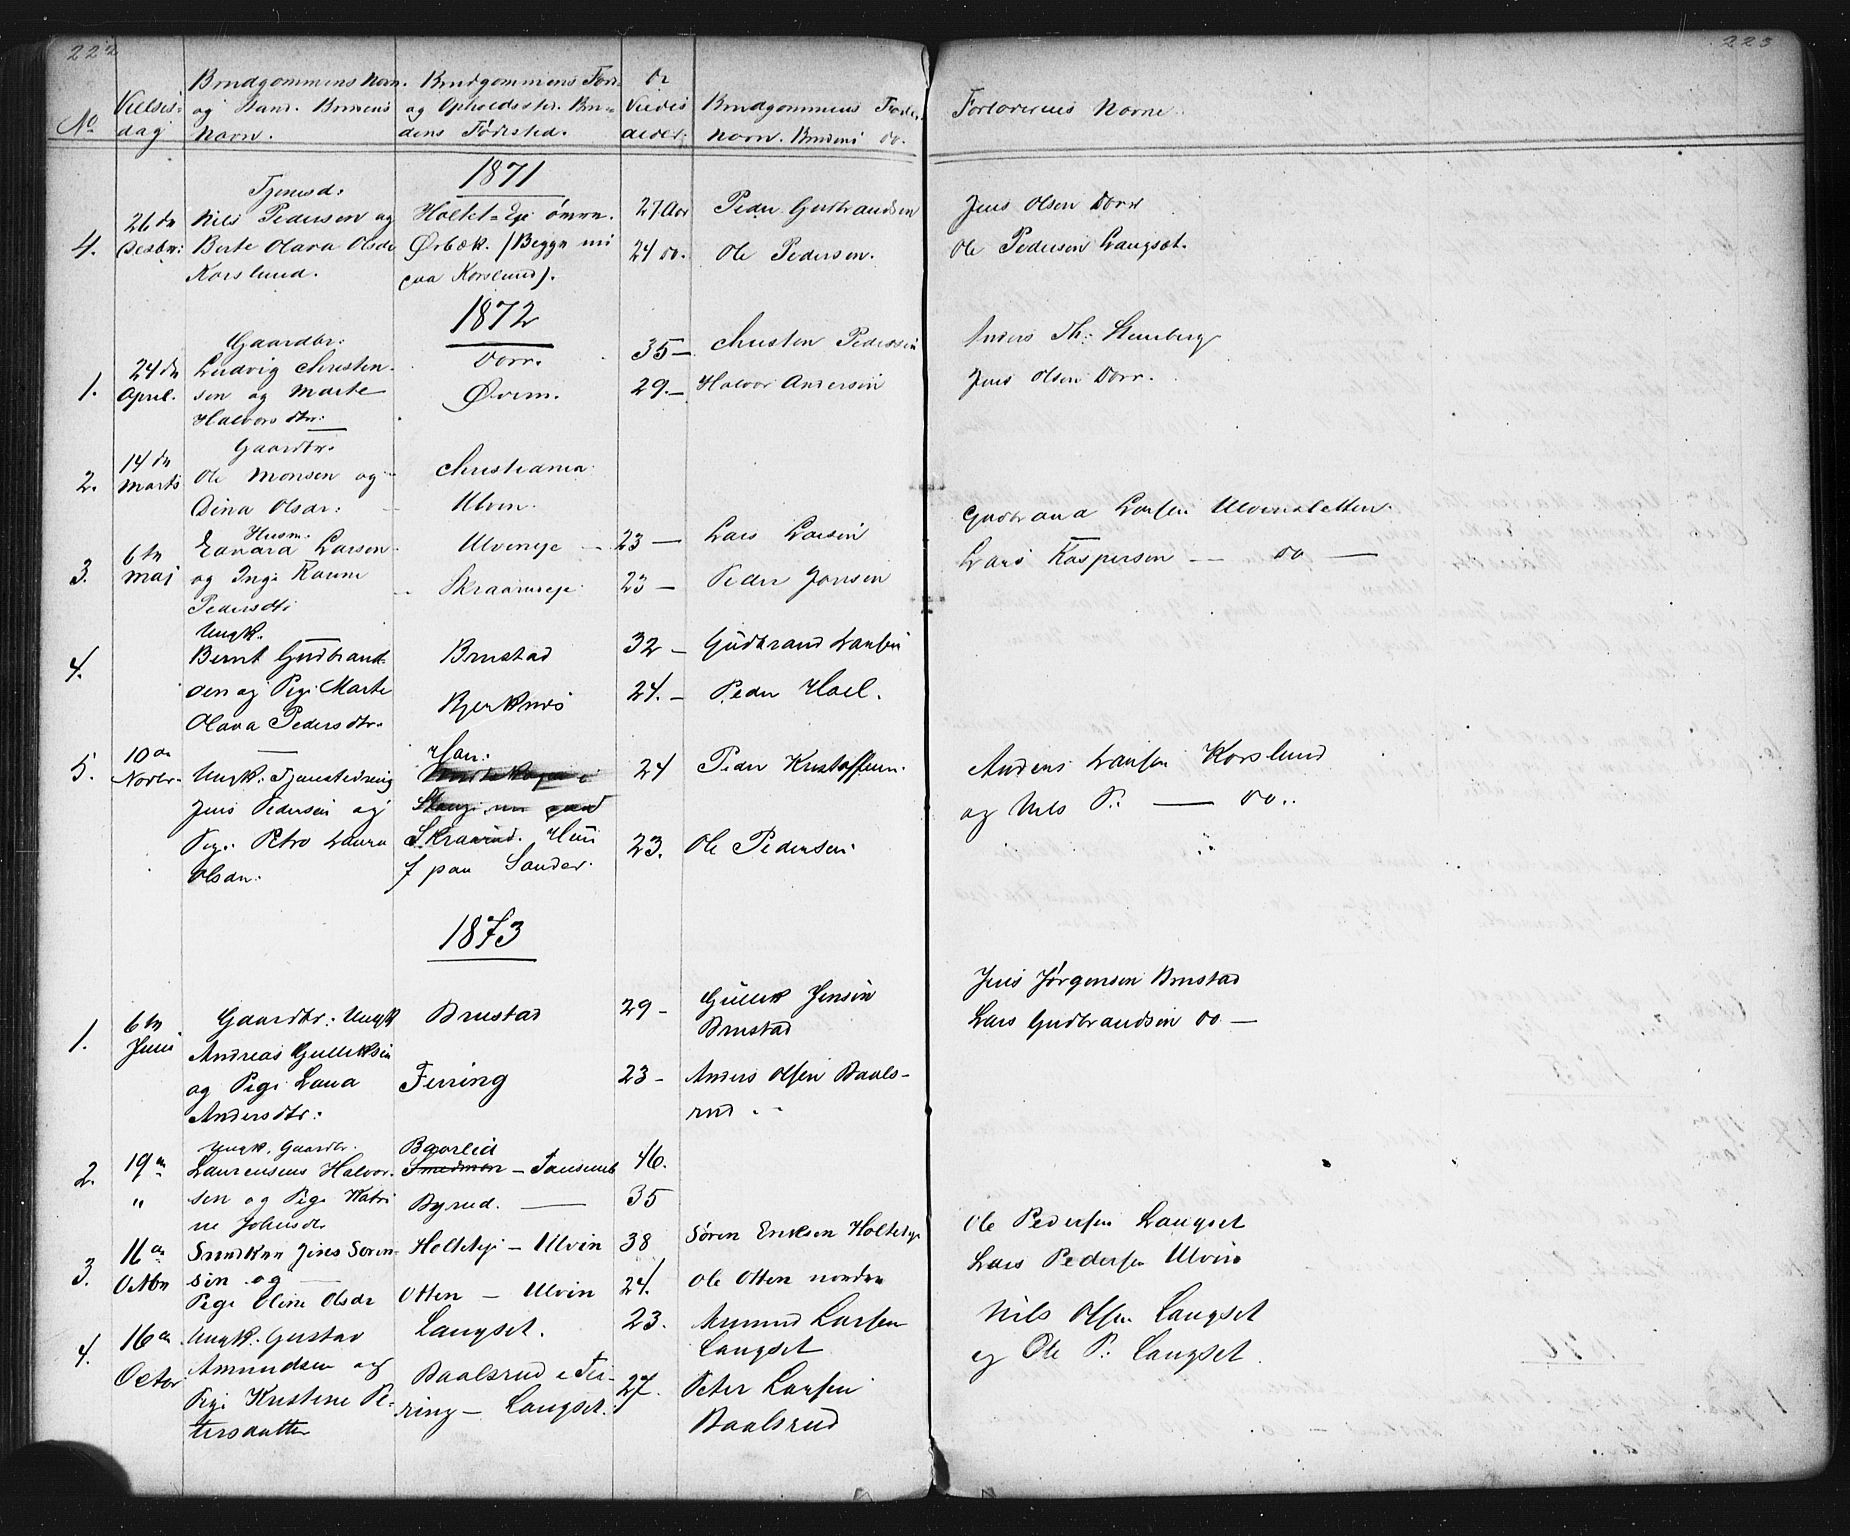 222
No
Vielses-
dag
Brudgommens Navn
og Stand. Brudens
Navn.
Brudgommens Føde-
og Opholdssted. Bru-
dens Fødested.
De
Viedes
alder.
Brudgommens Faders
Navn. Brudens do.
1871
4.
26de
Decbr:
Tjenesd:
Nils Pedersen og
Berte Olava Olsdr
Korslund.
Holtet-Eje
Ørbæk. (Begge nu
paa Korslund).
27 Aar
24 do.
Peder Gudbrandsen
Ole Pedersen.
1872
1.
24de
April.
Gaardbr:
Ludvig Christen-
sen og Marte
Halvorsdtr:
Dorr.
Øvern.
35 —
29. —
Christen Pedersen
Halvor Andersen
2.
14de
Marts
Gaardbr.
Ole Monsen og
Dina Olsdr:
Christiania
Ulvin.
3.
6te
Maj
Husm.
Edvard Larsen
og Inge Karine
Pedersdtr
Ulvineje
Skraarueje
23 —
23 —
Lars Larsen
Peder Jonsen
4.
Ungk.
Bernt Gudbrand-
sen og Pige Marte
Olava Pedersdtr.
Brustad
Bjerknes
32 —
24. —
Gudbrand Larsen
Peder Hoel.
5.
10de
Novbr.
Ungk: Tjenestedreng
Jens Pedersen og
Pige Petra Laura
Olsdr.
Han:
Stange nu paa
Skraarud. Hun
f paa Sander.
24
23.
Peder Kristoffersen.
Ole Pedersen
1873
1.
6te
Juli
Gaardbr: Ungk
Andreas Gulliksen
og Pige Lava
Andersdtr:
Brustad
Feiring
29 —
23 —
Gullik Jensen
Brustad
Anders Olsen Baals-
rud.
2.
19de
"
Ungk. Gaardbr.
Laurensens Halvor-
sen og Pige Katri
ne Johnsdr
Baarlid
Byrud. —
46.
35
3.
11de
Octbr
Jens Søren-
sen og —
Pige Oline Olsdr
Holteeje — Ulvin
Otten — Ulvin
38
24.
Søren Eriksen Holteeje
Ole Otten nordre
4.
16de
Octbr
Ungk. Gustav
Amundsen og
Pige Kristine Pe-
tersdatter
Langset.
Baalsrud i Fei-
ring — Langset.
23.
27.
Amund Larsen
Langset
Peter Larsen
Baalsrud
223
Forlovernes Navne
Jens Olsen Dorr
Ole Pedersen Langset.
Anders Th: Stensberg
Jens Olsen Dorr.
Gudbrand Larsen Ulvinsletten.
Lars Kaspersen — do —
Anders Larsen Korslund
og Nils P: — do..
Jens Jørgensen Brustad
Lars Gudbrandsen do —
Ole Pedersen Langset
Lars Pedersen Ulvin
Nils Olsen Langset
og Ole P: Langset.